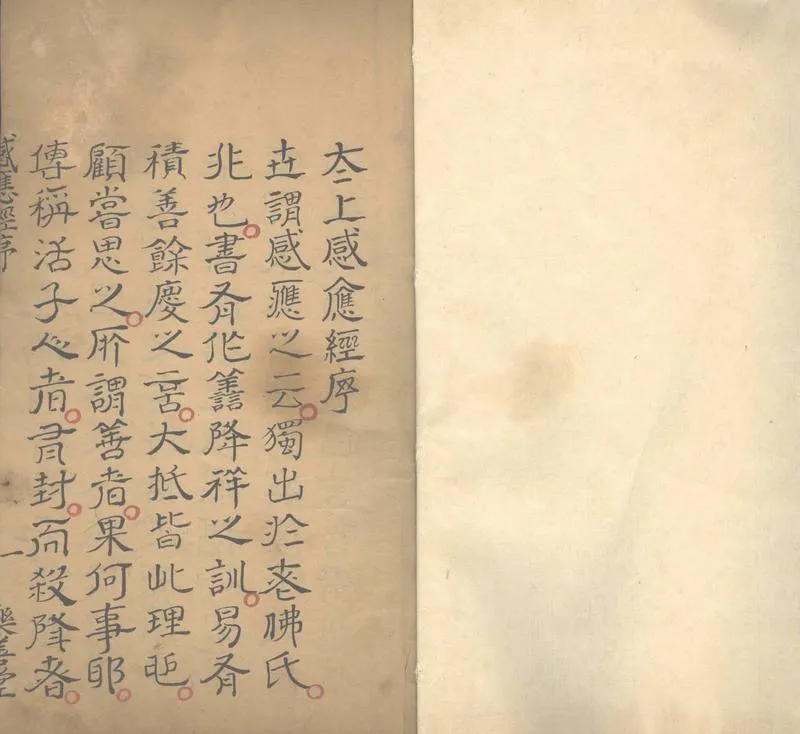 太上感應經序
世謂感應之云獨出於老佛氏
非也書有作善降祥之訓易有
積善餘慶之言大抵皆此理也
顧嘗思之所謂善者果何事耶
傳稱活千人者有封而殺降者
感應經序 一 樂善堂